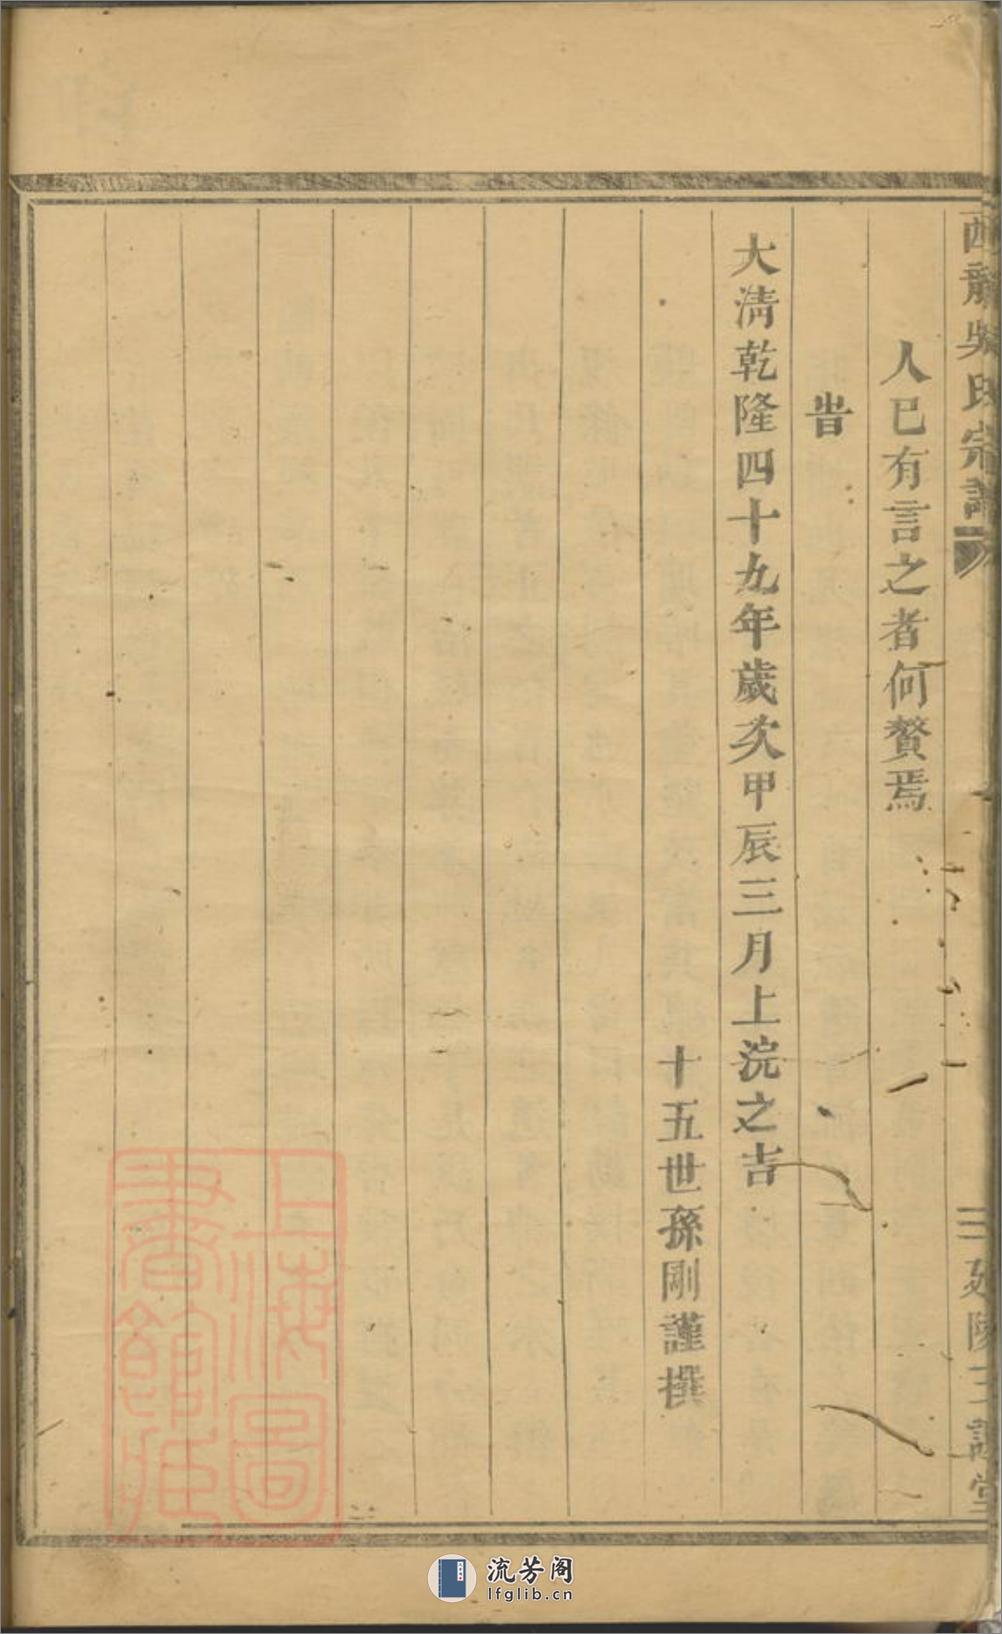 西龍吳氏宗譜
三 延陵三讓堂
人已有言之者何贅焉
旹
大清乾隆四十九年歲次甲辰三月上浣之吉
十五世孫剛謹撰
上海圖
書館藏
流芳阁
lfglib.cn